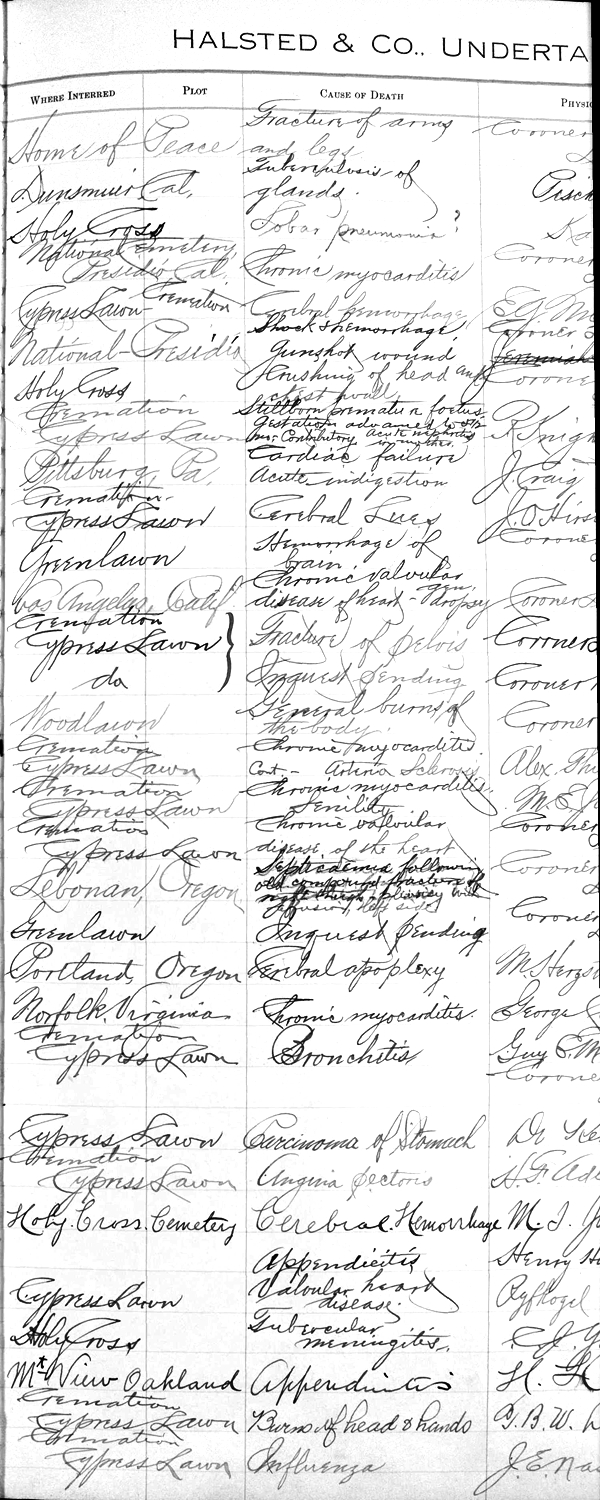 HALSTED & CO., UNDERTA
WHERE INTERRED PLOT CAUSE OF DEATH PHYSIC
Fracture of arms
Home of Peace and legs Coroner
Tuberculosis of
Dunsmuir Cal. glands.
Holy Cross Lobar pneumonia?
National Cemetery,
Presidio Cal. Chronic myocarditis Coroner
Cypress Lawn - Cremation Cerebral hemorrhage
Shock & hemorrhage, Coroner
National - Presidio Gunshot wound Jeremiah
Crushing of head and Corone
Holy Cross chest
Cremation Stillborn premature foetus.
Cypress Lawn Gestation advanced to
Contributory Acute nephritis in mother
Cardiac failure
Pittsburg, Pa. Acute indigestion J. Craig
Cremation -
Cypress Lawn Cerebral Lues J. O. Hirs
Hemorrhage of Corone
Greenlawn brain.
Chronic valvular
Los Angeles, Calif disease of heart - gen. dropsy Coroner
Cremation
Cypress Lawn Fracture of pelvis Corrners
do Inquest Pending Coroner
General burns of
Woodlawn the body. Coroner
Cremation Chronic myocarditis
Cypress Lawn Cont - Arterio Sclerosis Alex. Th
Cremation Chronic myocarditis.
Cypress Lawn Senility M. E.
Cremation Chronic valvular Coroner
Cypress Lawn disease of the heart
Septicaemia following Coroner
Lebonan, Oregon old compound fracture of
pleurisy with
effusion, left side Coroner
Greenlawn Inquest Pending
Portland, Oregon Cerebral apoplexy M. Herzs
Norfolk, Virginia Chronic myocarditis. George
Cremation
Cypress Lawn Bronchitis Guy E. M
Corone
Cypress Lawn Carcinoma of Stomach Dr
Cremation
Cypress Lawn Angina Pectoris H. F. Ade
Holy Cross Cemetery Cerebral Hemorrhage M. J.
Appendicitis Henry H
Valvular heart
Cypress Lawn disease.
Tubercular
Holy Cross meningitis.
Mt View Oakland Appendicitis H. H
Cremation
Cypress Lawn Burns of head & hands G. B. W.
Cremation
Cypress Lawn Influenza J. E. Nas